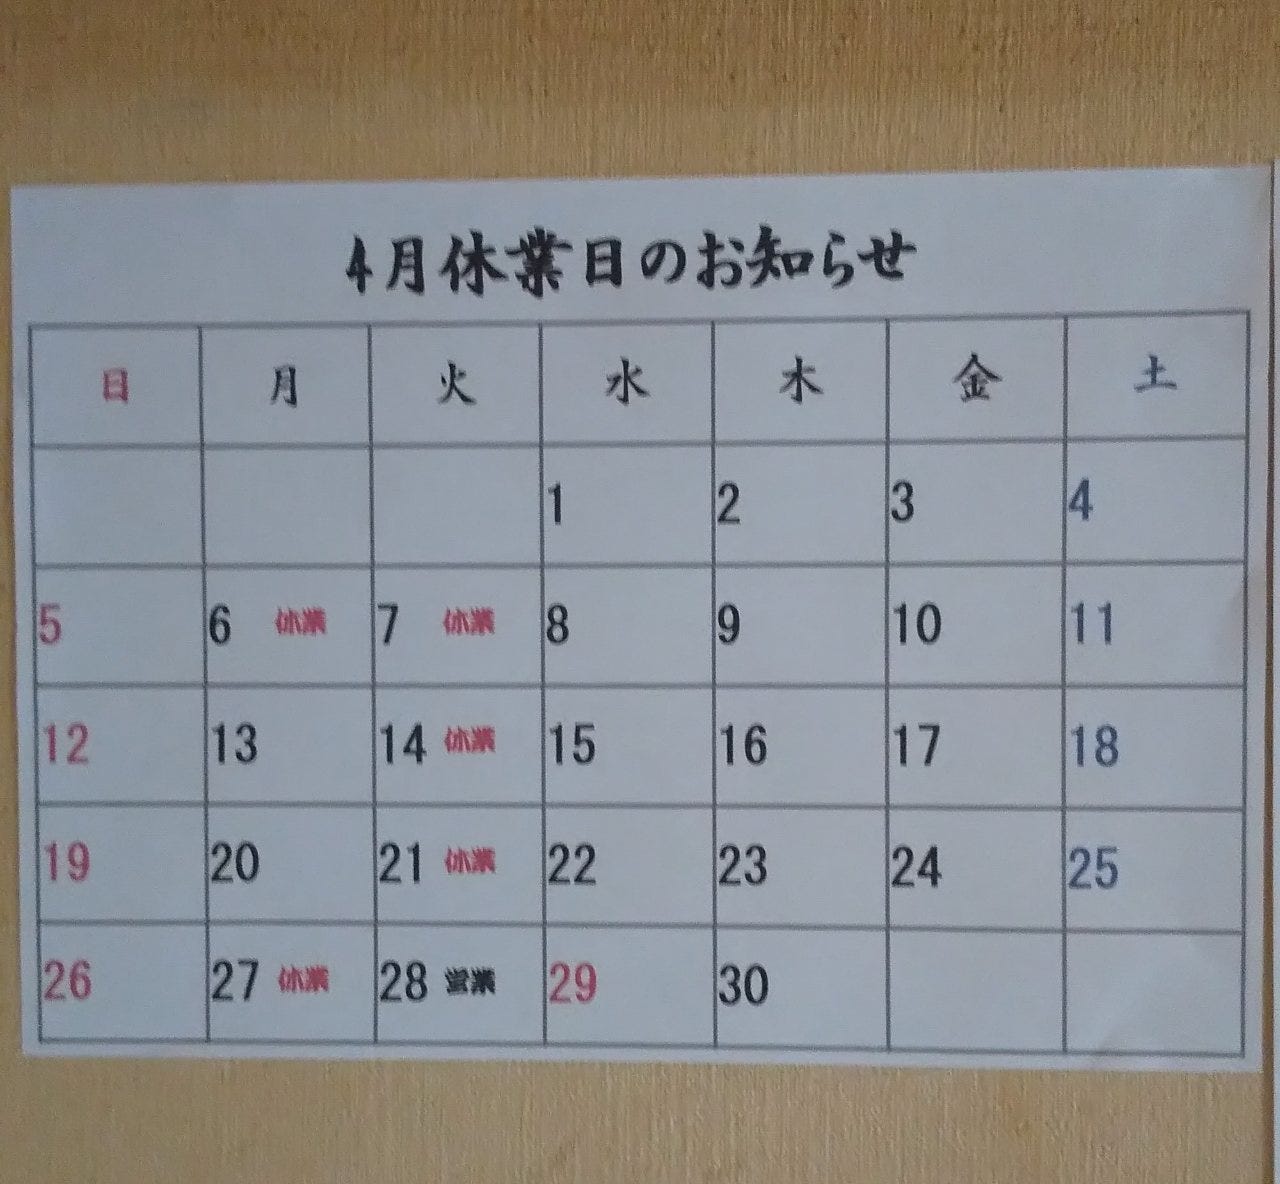 4月休業日のお知らせ
日 月 火 水 木 金 土
1 2 3 4
5 6 休業 7 休業 8 9 10 11
12 13 14 休業 15 16 17 18
19 20 21 休業 22 23 24 25
26 27 休業 28 営業 29 30